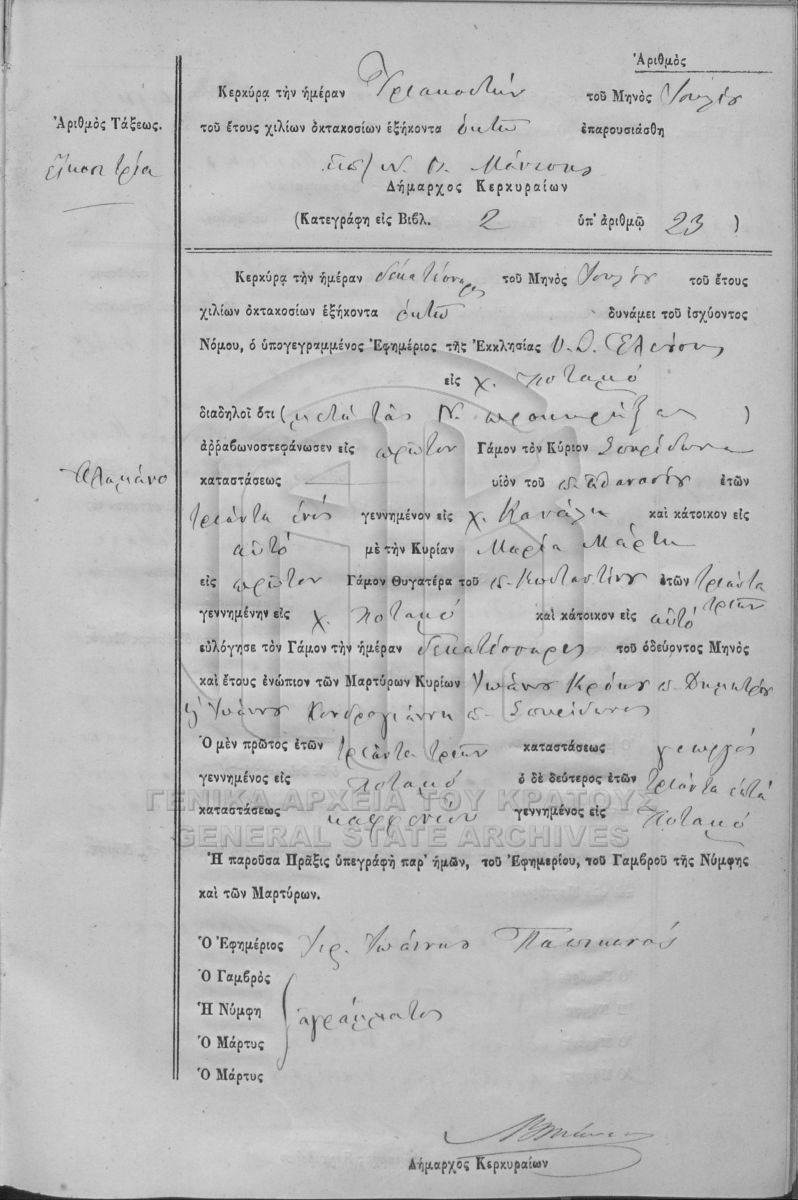 Ἀριθμὸς
Ἀριθμὸς Τάξεως.
εἴκοσι τρία
Κερκύρᾳ τὴν ἡμέραν Τριακοστὴν τοῦ Μηνὸς Ἰουλίου
τοῦ ἔτους χιλίων ὀκτακοσίων ἑξήκοντα ὀκτὼ ἐπαρουσιάσθη
Δήμαρχος Κερκυραίων
(Κατεγράφη εἰς Βιβλ. 2 ὑπ' ἀριθμῷ 23 )
Κερκύρᾳ τὴν ἡμέραν δεκατέσσαρες τοῦ Μηνὸς Ἰουλίου τοῦ ἔτους
χιλίων ὀκτακοσίων ἑξήκοντα ὀκτὼ δυνάμει τοῦ ἰσχύοντος
Νόμου, ὁ ὑπογεγραμμένος Ἐφημέριος τῆς Ἐκκλησίας Υ. Θ. Ἐλεούσης
εἰς χ. Ποταμὸ
διαδηλοῖ ὅτι ( μετὰ τὰς Ν. προκηρήξας )
ἀῤῥαβωνοστεφάνωσεν εἰς πρῶτον Γάμον τὸν Κύριον Σπυρίδωνα
Αλαμάνο
καταστάσεως υἱὸν τοῦ π. Αθανασίου ἐτῶν
τριάντα ἑνός γεννημένον εἰς χ. Κανάλη καὶ κάτοικον εἰς
αὐτό μὲ τὴν Κυρίαν Μαρία Μάρτη
εἰς πρῶτον Γάμον Θυγατέρα τοῦ π. Κωσταντίνου ἐτῶν τριάντα
τριῶν
γεννημένην εἰς χ. Ποταμό καὶ κάτοικον εἰς αὐτό
εὐλόγησε τὸν Γάμον τὴν ἡμέραν δεκατέσσαρες τοῦ ὁδεύοντος Μηνὸς
καὶ ἔτους ἐνώπιον τῶν Μαρτύρων Κυρίων Ἰωάννου Κρόκου π. Δημητρίου
ϗ Ἰωάννου Κονδρογιάννη π. Σπυρίδωνος
Ὁ μὲν πρῶτος ἐτῶν τριάντα τριῶν καταστάσεως γεωργός
γεννημένος εἰς Ποταμό ὁ δὲ δεύτερος ἐτῶν τριάντα ἑπτά
καταστάσεως γεννημένος εἰς Ποταμό
ΓΕΝΙΚΑ ΑΡΧΕΙΑ ΤΟΥ ΚΡΑΤΟΥΣ
GENERAL STATE ARCHIVES
Ἡ παροῦσα Πρᾶξις ὑπεγράφη παρ' ἡμῶν, τοῦ Ἐφημερίου, τοῦ Γαμβροῦ τῆς Νύμφης
καὶ τῶν Μαρτύρων.
Ὁ Ἐφημέριος Ἱερ. Ἰωάννης
Ὁ Γαμβρὸς
Ἡ Νύμφη ἀγράμματος
Ὁ Μάρτυς
Ὁ Μάρτυς
Δήμαρχος Κερκυραίων